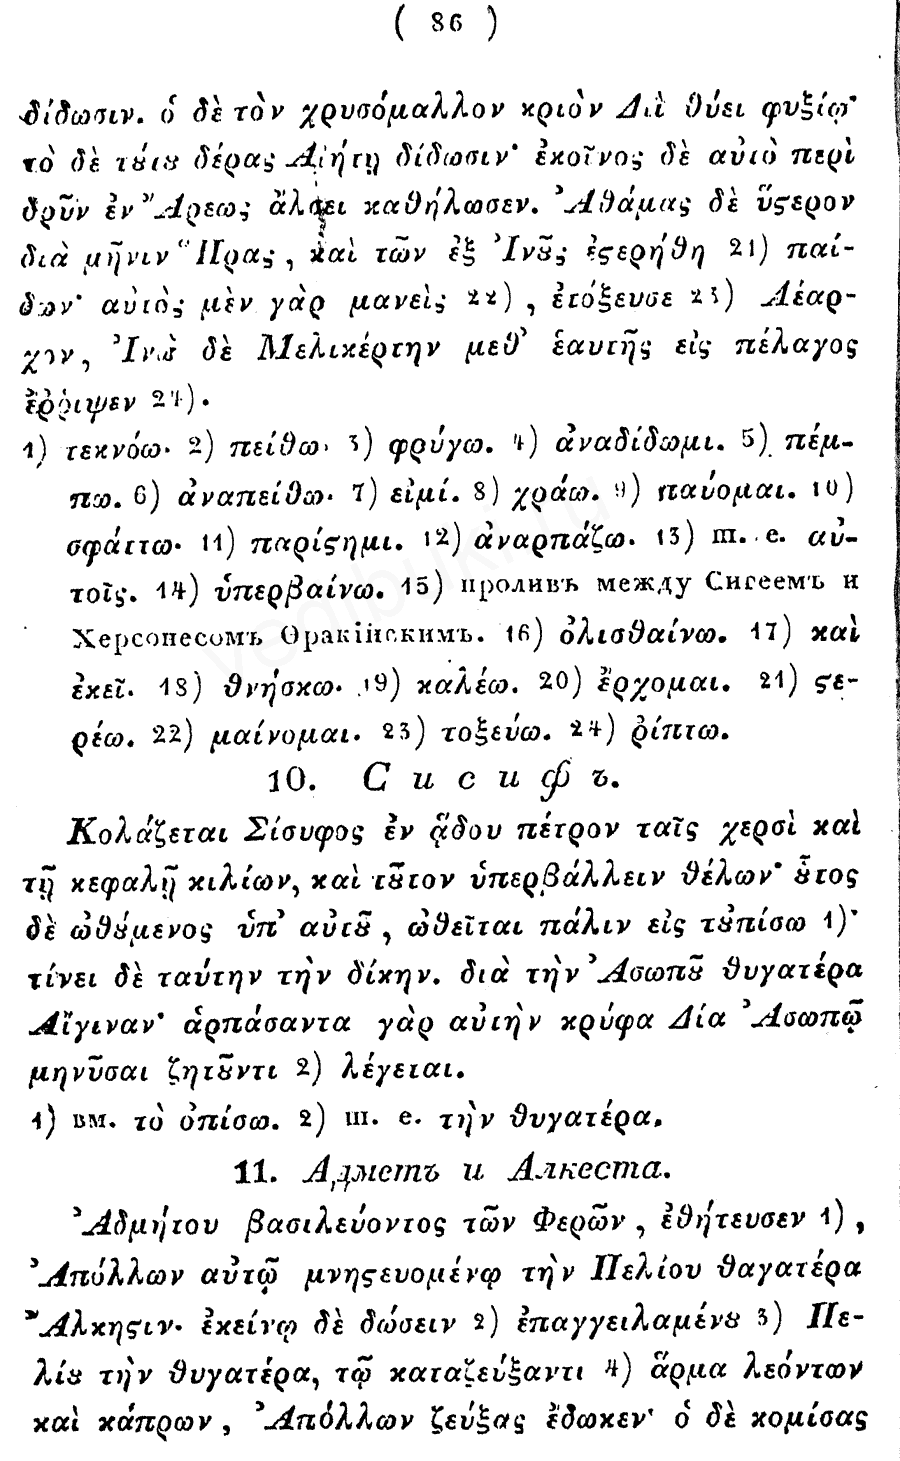 ( 86 )
δίδωσιν. ὁ δὲ τὸν χρυσόμαλλον κριὸν Διῒ θύει φυξίῳ·
τὸ δὲ τȣ́τȣ δέρας Αἰήτῃ δίδωσιν· ἐκεῖνος δὲ αὐτὸ περὶ
δρῦν ἐν Ἄρεως ἄλσει καθήλωσεν. Ἀθάμας δὲ ὕϛερον
διὰ μῆνιν Ἥρας, καὶ τῶν ἐξ Ἰνȣ͂ς ἐϛερήθη 21) παί-
δων· αὐτὸς μὲν γὰρ μανεὶς 22), ἐτόξευσε 23) Λέαρ-
χον, Ἰνὼ δὲ Μελικέρτην μεθ' ἑαυτῆς εἰς πέλαγος
ἔῤῥιψεν 24).
1) τεκνόω· 2) πείθω· 3) φρύγω. 4) ἀναδίδωμι. 5) πέμ-
πω. 6) ἀναπείθω· 7) εἰμί. 8) χράω. 9) παύομαι. 10)
σφάττω· 11) παρίϛημι. 12) ἀναρπάζω. 13) т. е. αὐ-
τοῖς. 14) ὑπερβαίνω. 15) проливъ между Сигеемъ и
Херсонесомъ Ѳракійскимъ. 16) ὀλισθαίνω. 17) καὶ
ἐκεῖ. 18) θνήσκω· 19) καλέω. 20) ἔρχομαι. 21) ϛε-
ρέω. 22) μαίνομαι. 23) τοξεύω. 24) ῥίπτω.
10. Сисифъ.
Κολάζεται Σίσυφος ἐν ᾅδου πέτρον ταῖς χερσὶ καὶ
τῇ κεφαλῇ κιλίων, καὶ τȣ͂τον ὑπερβάλλειν θέλων· ȣ̔͂τος
δὲ ὠθȣ́μενος ὑπ' αὐτȣ͂, ὠθεῖται πάλιν εἰς τȣ̓πίσω 1)·
τίνει δὲ ταύτην τὴν δίκην. διὰ τὴν Ἀσωπȣ͂ θυγατέρα
Αἴγιναν· ἁρπάσαντα γὰρ αὐτὴν κρύφα Δία Ἀσωπῷ
μηνῦσαι ζητȣ͂ντι 2) λέγεται.
1) вм. τὸ ὀπίσω. 2) т. е. τὴν θυγατέρα.
11. Адметъ и Алкеста.
Ἀδμήτου βασιλεύοντος τῶν Φερῶν, ἐθήτευσεν 1),
Ἀπόλλων αὐτῷ μνηϛευομένῳ τὴν Πελίου θαγατέρα
Ἄλκηϛιν· ἐκείνῳ δὲ δώσειν 2) ἐπαγγειλαμένȣ 3) Πε-
λίȣ τὴν θυγατέρα, τῷ καταζεύξαντι 4) ἅρμα λεόντων
καὶ κάπρων, Ἀπόλλων ζεύξας ἔδωκεν· ὁ δὲ κομίσας